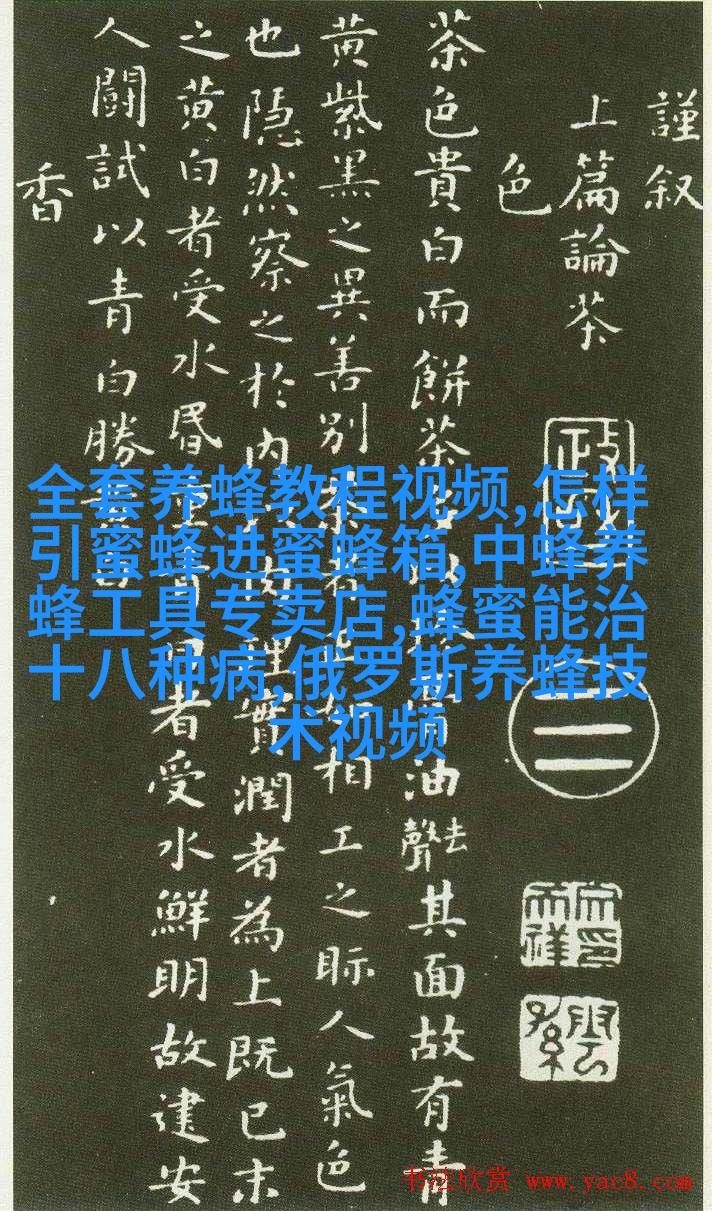 謹叙
上篇論茶
色
茶色貴白而餅茶多以膏油去聲其面故有青
黄紫黑之異善别茶者正如相工之眎人氣色
也隠然察之於内以肉理實潤者為上既已末
之黄白者受水昬重青白者受水鮮明故建安
人闘試以青白勝黄白
香
全套养蜂教程视频,怎样
引蜜蜂进蜜蜂箱,中蜂养
蜂工具专卖店,蜂蜜能治
十八种病,俄罗斯养蜂技
术视频
书法欣赏 www.yac8.com